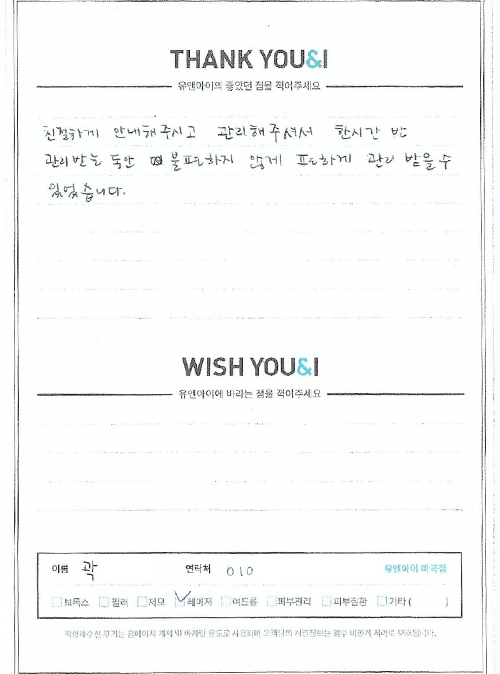 THANK YOU&I
유앤아이의 좋았던 점을 적어주세요
친절하게 안내해주시고 관리해주셔서 한시간 반
관리받는 동안 불편하지 않게 편하게 관리 받을수
있었습니다.
WISH YOU&I
유앤아이에 바라는 점을 적어주세요
이름 곽 연락처 010 유앤아이 마곡점
보톡스 필러 제모 레이저 여드름 피부관리 피부질환 기타 ( )
작성해주신 후기는 홈페이지 게재 및 마케팅 용도로 사용되며 고객님의 개인정보는 일부 비공개 처리로 보호됩니다.